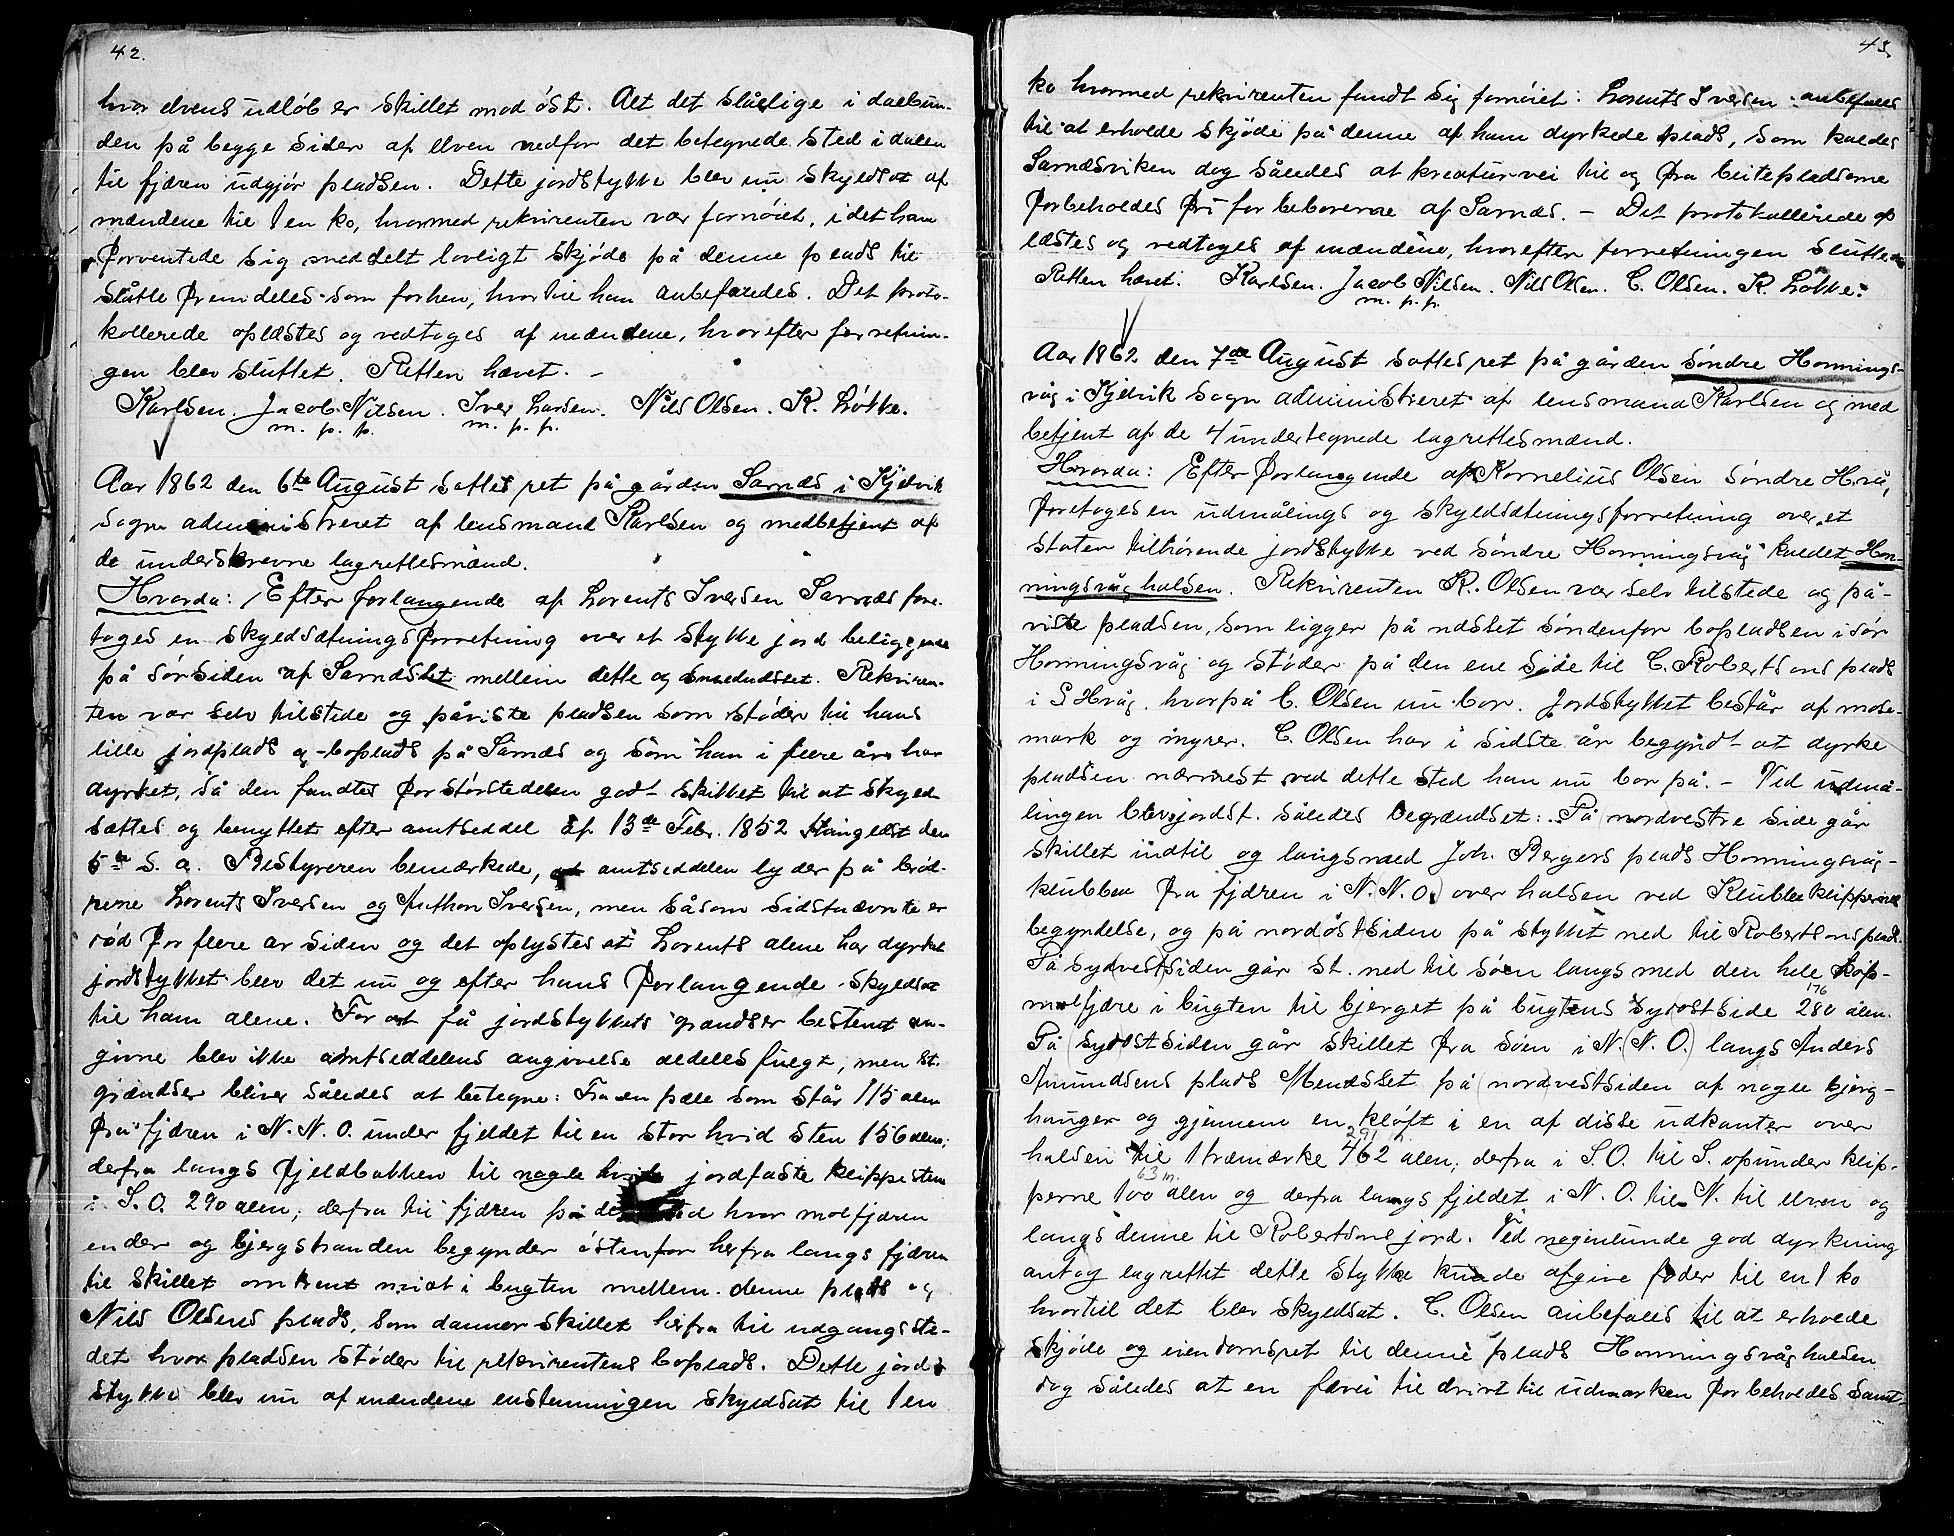 42.
hvor elvens udløb er skillet mod øst. Alt det slåelige i dalbun-
den på begge sider af elven nedfor det betegnede sted i dalen
til fjæren udgjør pladsen. Dette jordstykke blev nu skyldsat af
mændene til 1 en ko, hvormed rekvirenten var fornøiet, idet han
forventede sig meddelt lovligt skjøde på denne plads til
slåtte fremdeles som forhen, hvortil han anbefaledes. Det proto-
kollerede oplæstes og vedtoges af mændene, hvorefter forretnin-
gen blev sluttet. Retten hævet. -
Karlsen. Jacob Nilsen. Iver Larsen. Nils Olsen. K. Løkke.
m. p. p. m. p. p.
Aar 1862 den 6te August sattes ret på gården Sarnes i Kjelvik
sogn administreret af lensmand Karlsen og medbetjent af
de underskrevne lagrettesmænd.
Hvorda: Efter forlangende af Lorents Iversen Sarnes fore-
toges en skyldsætningsforretning over et stykke jord beliggende
på sørsiden af Sarnæset mellem dette og Rekviren-
ten var selv tilstede og påviste pladsen som støder til hans
lille jordplads og boplads på Sarnæs og som han i flere år har
dyrket, så den fandtes for størstedelen godt skikket til at skyld-
sættes og benyttet efter amtseddel af 13de Febr. 1852 thinglæst den
5te s. a. Bestyreren bemærkede, at amtseddelen lyder på brød-
rene Lorents Iversen og Anthon Iversen, men såsom sidstnævnte er
død for flere år siden og det oplystes at Lorents alene har dyrket
jordstykket blev det nu og efter hans forlangende skyldsat
til ham alene. For at få jordstykkets grændser bestemt an-
givne blev ikke amtseddelens angivelse aldeles fulgt, men st.
grændser bliver således at betegne: Fra en pæle som står 115 alen
fra fjæren i N. N. O. under fjeldet til en stor hvid sten 156 alen;
derfra langs fjeldbakken til nogle hvide jordfaste klippesten
i S. O. 290 alen; derfra til fjæren på hvor molfjæren
ender og bjergstranden begynder østenfor herfra langs fjæren
til skillet omtrent midt i bugten mellem denne plads og
Nils Olsens plads, som danner skillet herfra til udgangsste-
det hvor pladsen støder til rekvirentens boplads. Dette jord-
stykke blev nu af mændene enstemmigen skyldsat til 1 en
43.
ko hvormed rekvirenten fandt sig fornøiet: Lorents Iversen anbefales
til at erholde skjøde på denne af ham dyrkede plads, som kaldes
Sarnæsviken dog således at kreaturvei til og fra beitepladserne
forbeholdes fri for beboerne af Sarnæs. - Det protokollerede op
læstes og vedtoges af mændene, hvorefter forretningen sluttedes
Retten hævet. Karlsen. Jacob Nilsen. Nils Olsen. C. Olsen. K. Løkke.
m. p. p.
Aar 1862 den 7de August sattes ret på gården søndre Honnings-
våg i Kjelvik sogn administreret af lensmand Karlsen og med
betjent af de 4 undertegnede lagrettesmænd.
Hvorda: Efter forlangende af Kornelius Olsen søndre Hvåg,
foretoges en udmålings og skyldsætningsforretning over et
staten tilhørende jordstykke ved søndre Honningsvåg kaldet Hon-
ningsvåg halsen. Rekvirenten K. Olsen var selv tilstede og på-
viste pladsen, som ligger på næsset søndenfor bopladsen i sør
Honningsvåg og støder på den ene side til C. Robertsons plads
i S Hvåg, hvorpå C. Olsen nu bor. Jordstykket består af mose-
mark og myrer. C. Olsen har i sidste år begyndt at dyrke
pladsen nærmest ved dette sted han nu bor på. - Ved udmå-
lingen blev jordst. således begrændset: På nordvestre side går
skillet indtil og langsmed Joh. Bergers plads Honningsvåg-
klubben fra fjæren i N. N. O. over halsen ved Klubbeklippernes
begyndelse, og på nordøstsiden på stykket ned til Robertsons plads.
På (sydvest)siden går st. ned til søen langs med den hele
molfjære i bugten til bjerget på bugtens sydostside 280 alen.
176
På (sydost siden går skillet fra søen i N. (N. O.) langs Anders
Amundsens plads Menæsset på (nordvestsiden af nogle bjerg-
hauger og gjennem en kløft i en af disse udkanter over
halsen til 1 træmærke 462 alen; derfra i S. O. til S. opunder klip-
291
perne 100 alen og derfra langs fjeldet i N. O. til N. til elven og
63 m.
langs denne til Robertsons jord. Ved nogenlunde god dyrkning
antog lagrettet dette stykke kunde afgive foder til en 1 ko
hvortil det blev skyldsat. C. Olsen anbefales til at erholde
skjøde og eiendomsret til denne plads Honningsvåg halsen
dog således at en færei til drivt til udmarken forbeholdes samt-